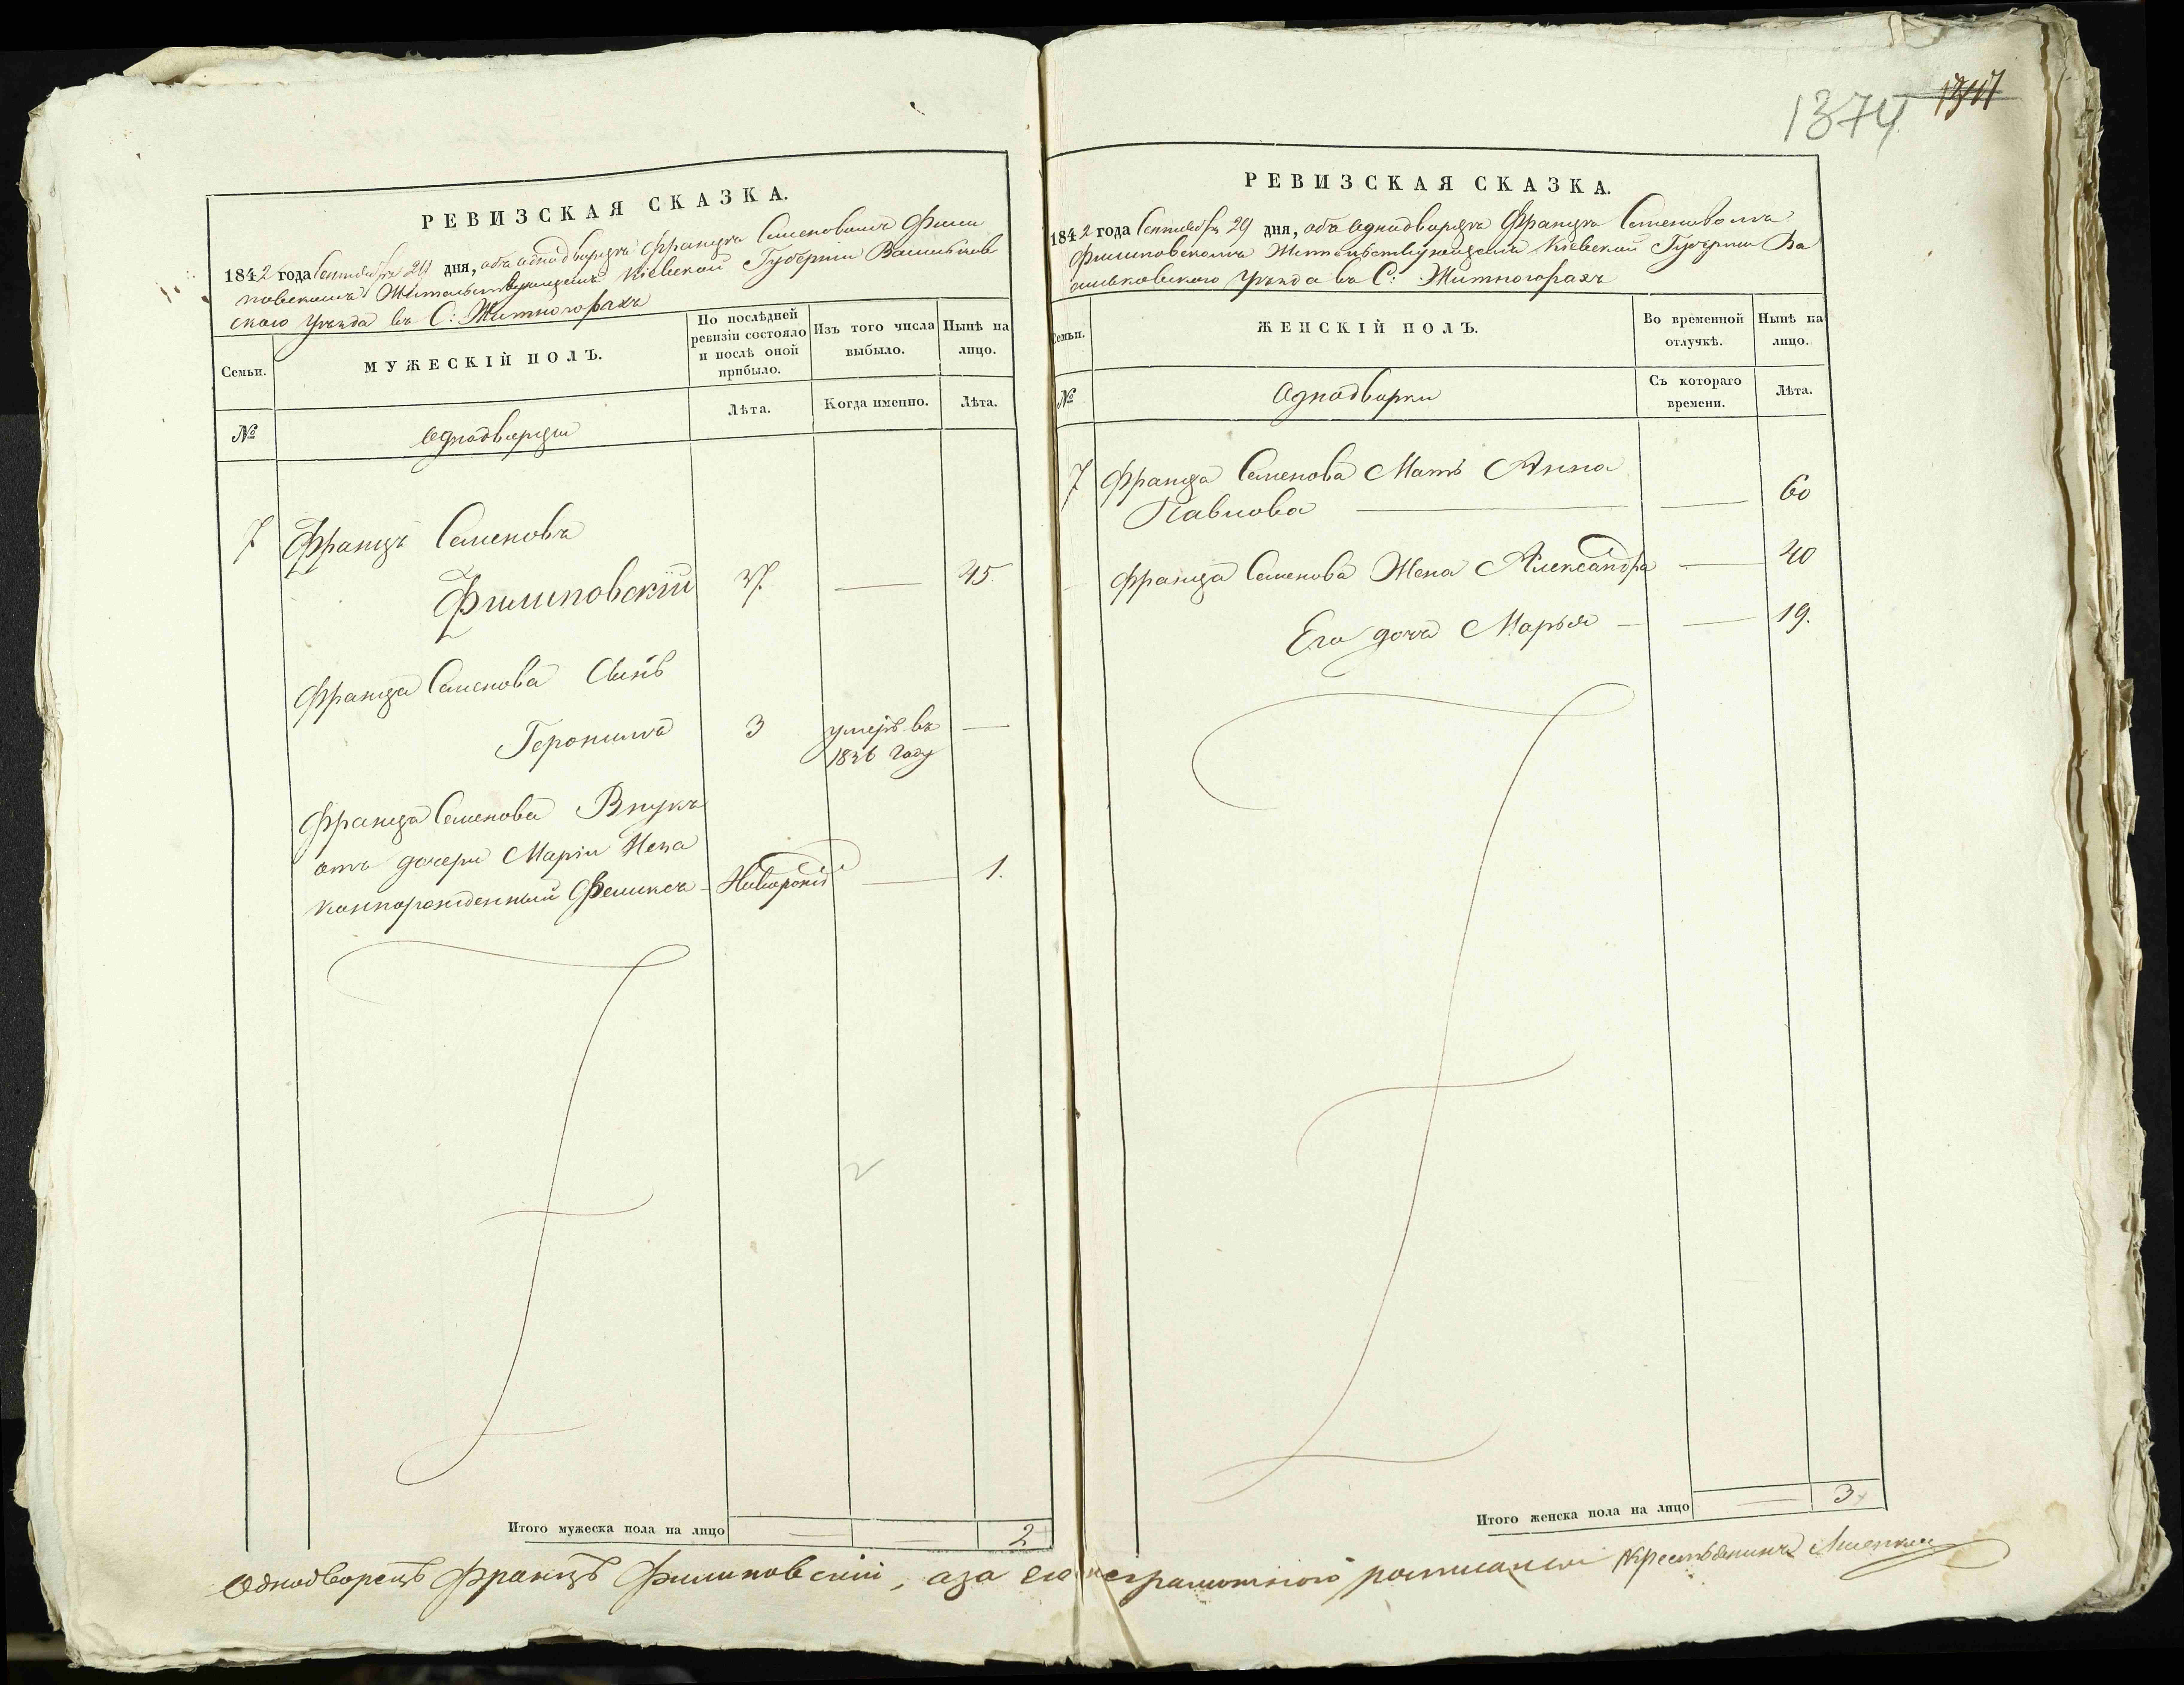 1374 1347
РЕВИЗСКАЯ СКАЗКА.
1842 года Сентября 29 дня, объ однодворцѣ Францѣ Семеновомъ Фили
повскомъ Жительствующемъ Кіевской Губерніи Васильков
скаго уѣзда въ С: Житногорахъ
Семьи.
МУЖЕСКІЙ ПОЛЪ.
По послѣдней ревизіи состояло и послѣ оной прибыло.
Изъ того числа выбыло.
Нынѣ на лицо.
№
Однодворцы
Лѣта.
Когда именно.
Лѣта.
7 Францъ Семеновъ
Филиповскій 37. — 45.
Франца Семенова Сынъ
Геронимъ 3 умеръ въ —
1836 году
Франца Семенова Внукъ
отъ дочери Маріи Неза
коннорожденный Феликсъ - Новорожд — 1.
Итого мужеска пола на лицо — — 2
РЕВИЗСКАЯ СКАЗКА.
1842 года Сентября 29 дня, объ однодворцѣ Францѣ Семеновомъ
Филиповскомъ Жительствующемъ Кіевской Губерніи Ва
сильковскаго уѣзда въ С: Житногорахъ
Семьи.
ЖЕНСКІЙ ПОЛЪ.
Во временной отлучкѣ.
Нынѣ на лицо.
№
Однодворки
Съ котораго времени.
Лѣта.
7 Франца Семенова Мать Анна
Павлова — — 60
Франца Семенова Жена Александра — 40
Его дочь Марья — — 19.
Итого женска пола на лицо — 3
Однодворецъ Францъ Филиповскій, а за его неграмотного росписался Крестьянинъ